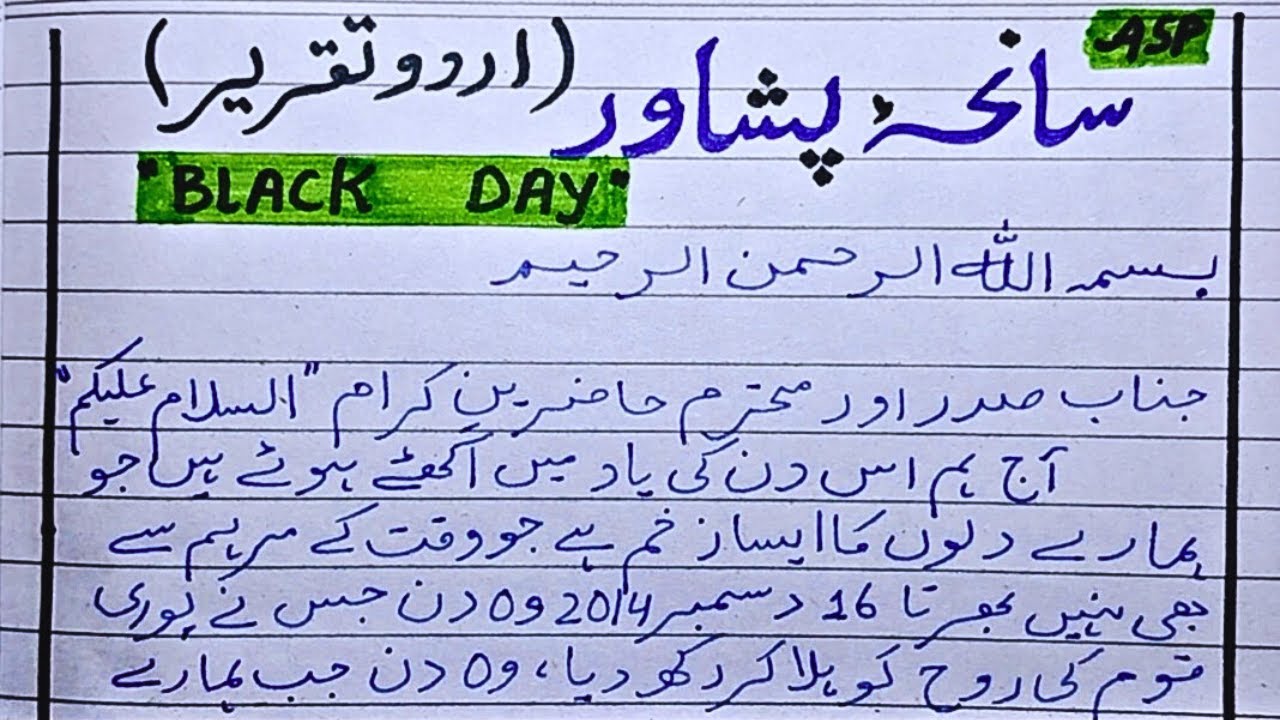 ASP
سانحۂ پشاور (اردو تقریر)
"BLACK DAY"
بسمہ اللہ الرحمن الرحیم
جناب صدر اور محترم حاضرین کرام "السلام علیکم"
آج ہم اس دن کی یاد میں اکھٹے ہوئے ہیں جو
ہمارے دلوں کا ایسا زخم ہے جو وقت کے مرہم سے
بھی نہیں بھرتا 16 دسمبر 2014 وہ دن جس نے پوری
قوم کی روح کو ہلا کر رکھ دیا، وہ دن جب ہمارے